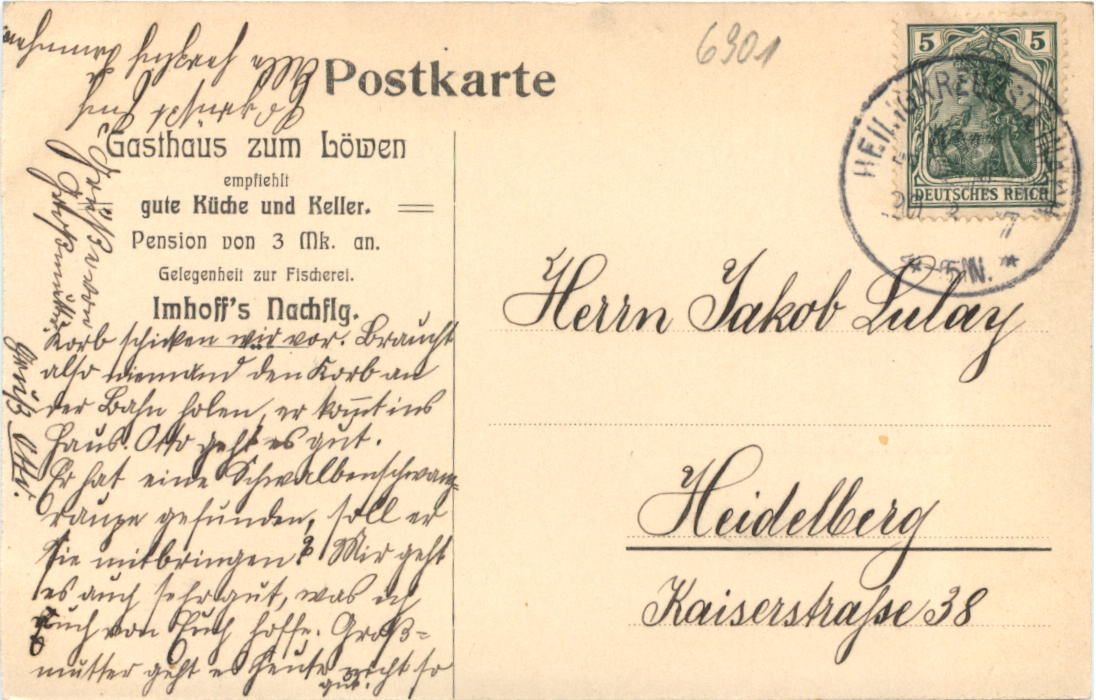 6901
Postkarte
5 5
DEUTSCHES REICH
HEILIGKREUZSTEINACH
5-6N.
Gasthaus zum Löwen
empfiehlt
gute Küche und Keller.
Pension von 3 Mk. an.
Gelegenheit zur Fischerei.
Imhoff's Nachflg.
Herrn Jakob Lulay
Heidelberg
Kaiserstraße 38
Korb schicken wir vor. Braucht
also niemand den Korb an
der Bahn holen, er kommt ins
Haus. Otto geht es gut.
Er hat eine Schwalbenschwanz-
raupe gefunden, soll er
sie mitbringen? Mir geht
es auch sehr gut, was ich
auch von Euch hoffe. Groß-
mutter geht es heute nicht so
gut.
Gruß Otto.
Grüße von
Großmutter
Euch
Alle herzlich